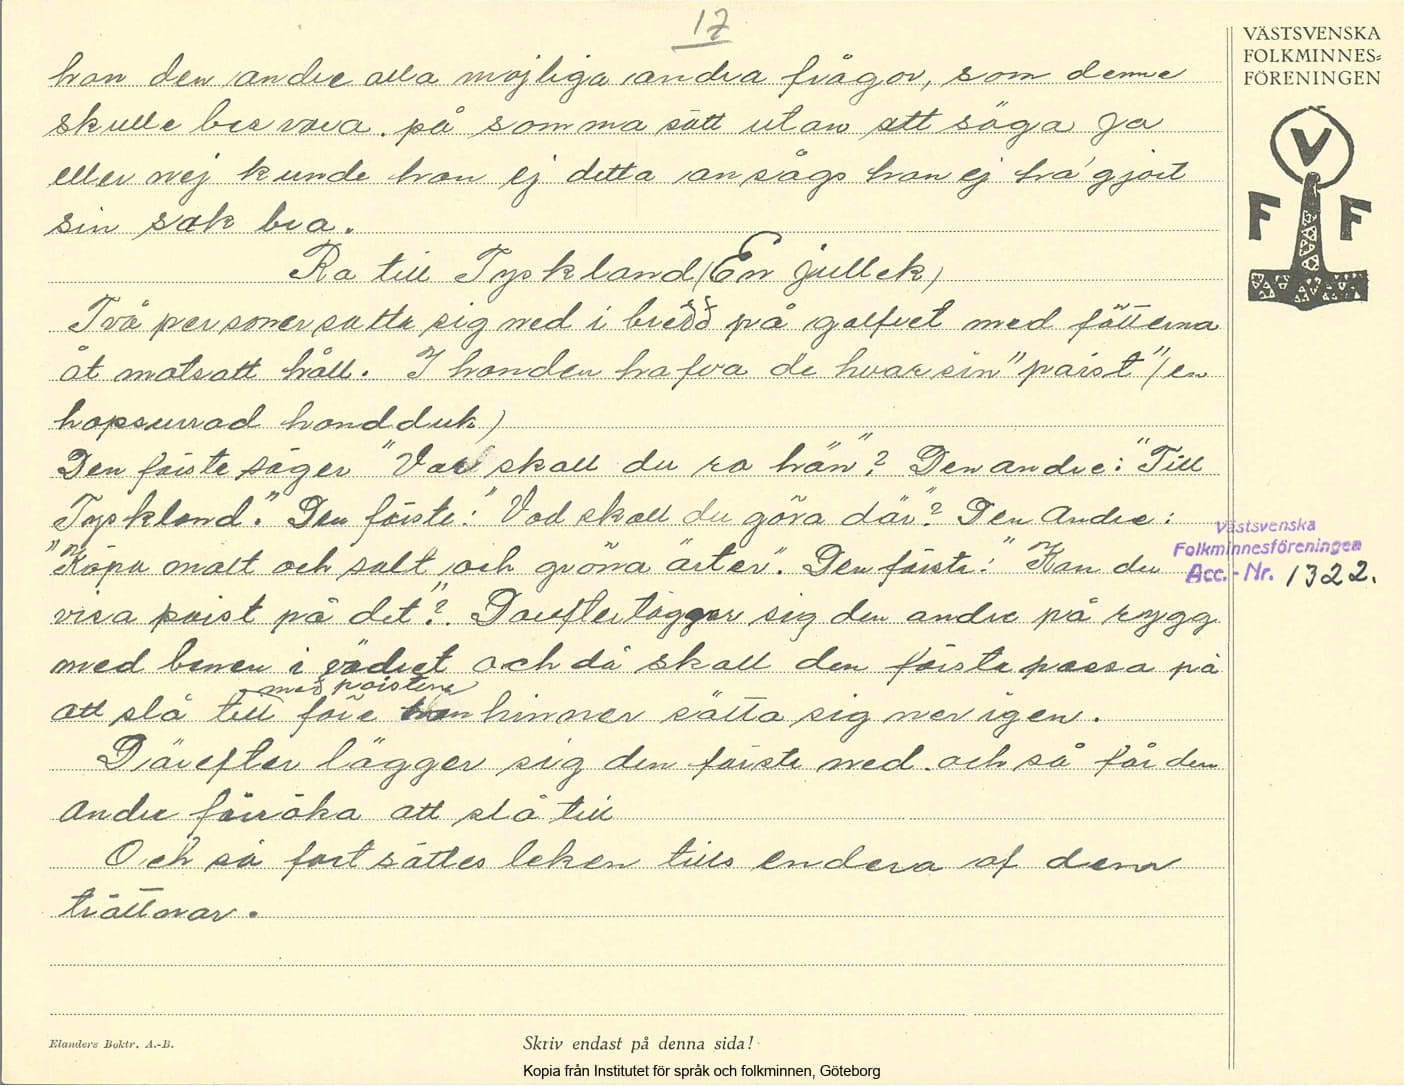 17
VÄSTSVENSKA
FOLKMINNES=
FÖRENINGEN
V
F F
han den andre alla möjliga andra frågor, som denne
skulle besvara. på samma sätt utan att säga ja
eller nej kunde han ej detta ansågs han ej ha gjort
sin sak bra.
Ra till Tyskland (En jullek)
Två personer satte sig ned i bredd på golfvet med fötterna
åt motsatt håll. I handen hafva de hvar sin "paist" (en
hopsurrad handduk)
Den förste säger "Var skall du ra hän"? Den andre: "Till
Tyskland". Den förste: "Vad skall du göra där"? Den Andre:
"Köpa malt och salt och gröna ärter". Den förste: "Kan du
visa paist på det"? Darefter lägger sig den andre på rygg
med benen i vädret och då skall den förste passa på
med paisten
att slå till före han hinner sätta sig ner igen.
Därefter lägger sig den förste ned. och så får den
andre försöka att slå till
Och så fortsättes leken tills endera af dem
tröttnar.
Västsvenska
Folkminnesföreningen
Acc.-Nr. 1322.
Elanders Boktr. A.-B.
Skriv endast på denna sida!
Kopia från Institutet för språk och folkminnen, Göteborg